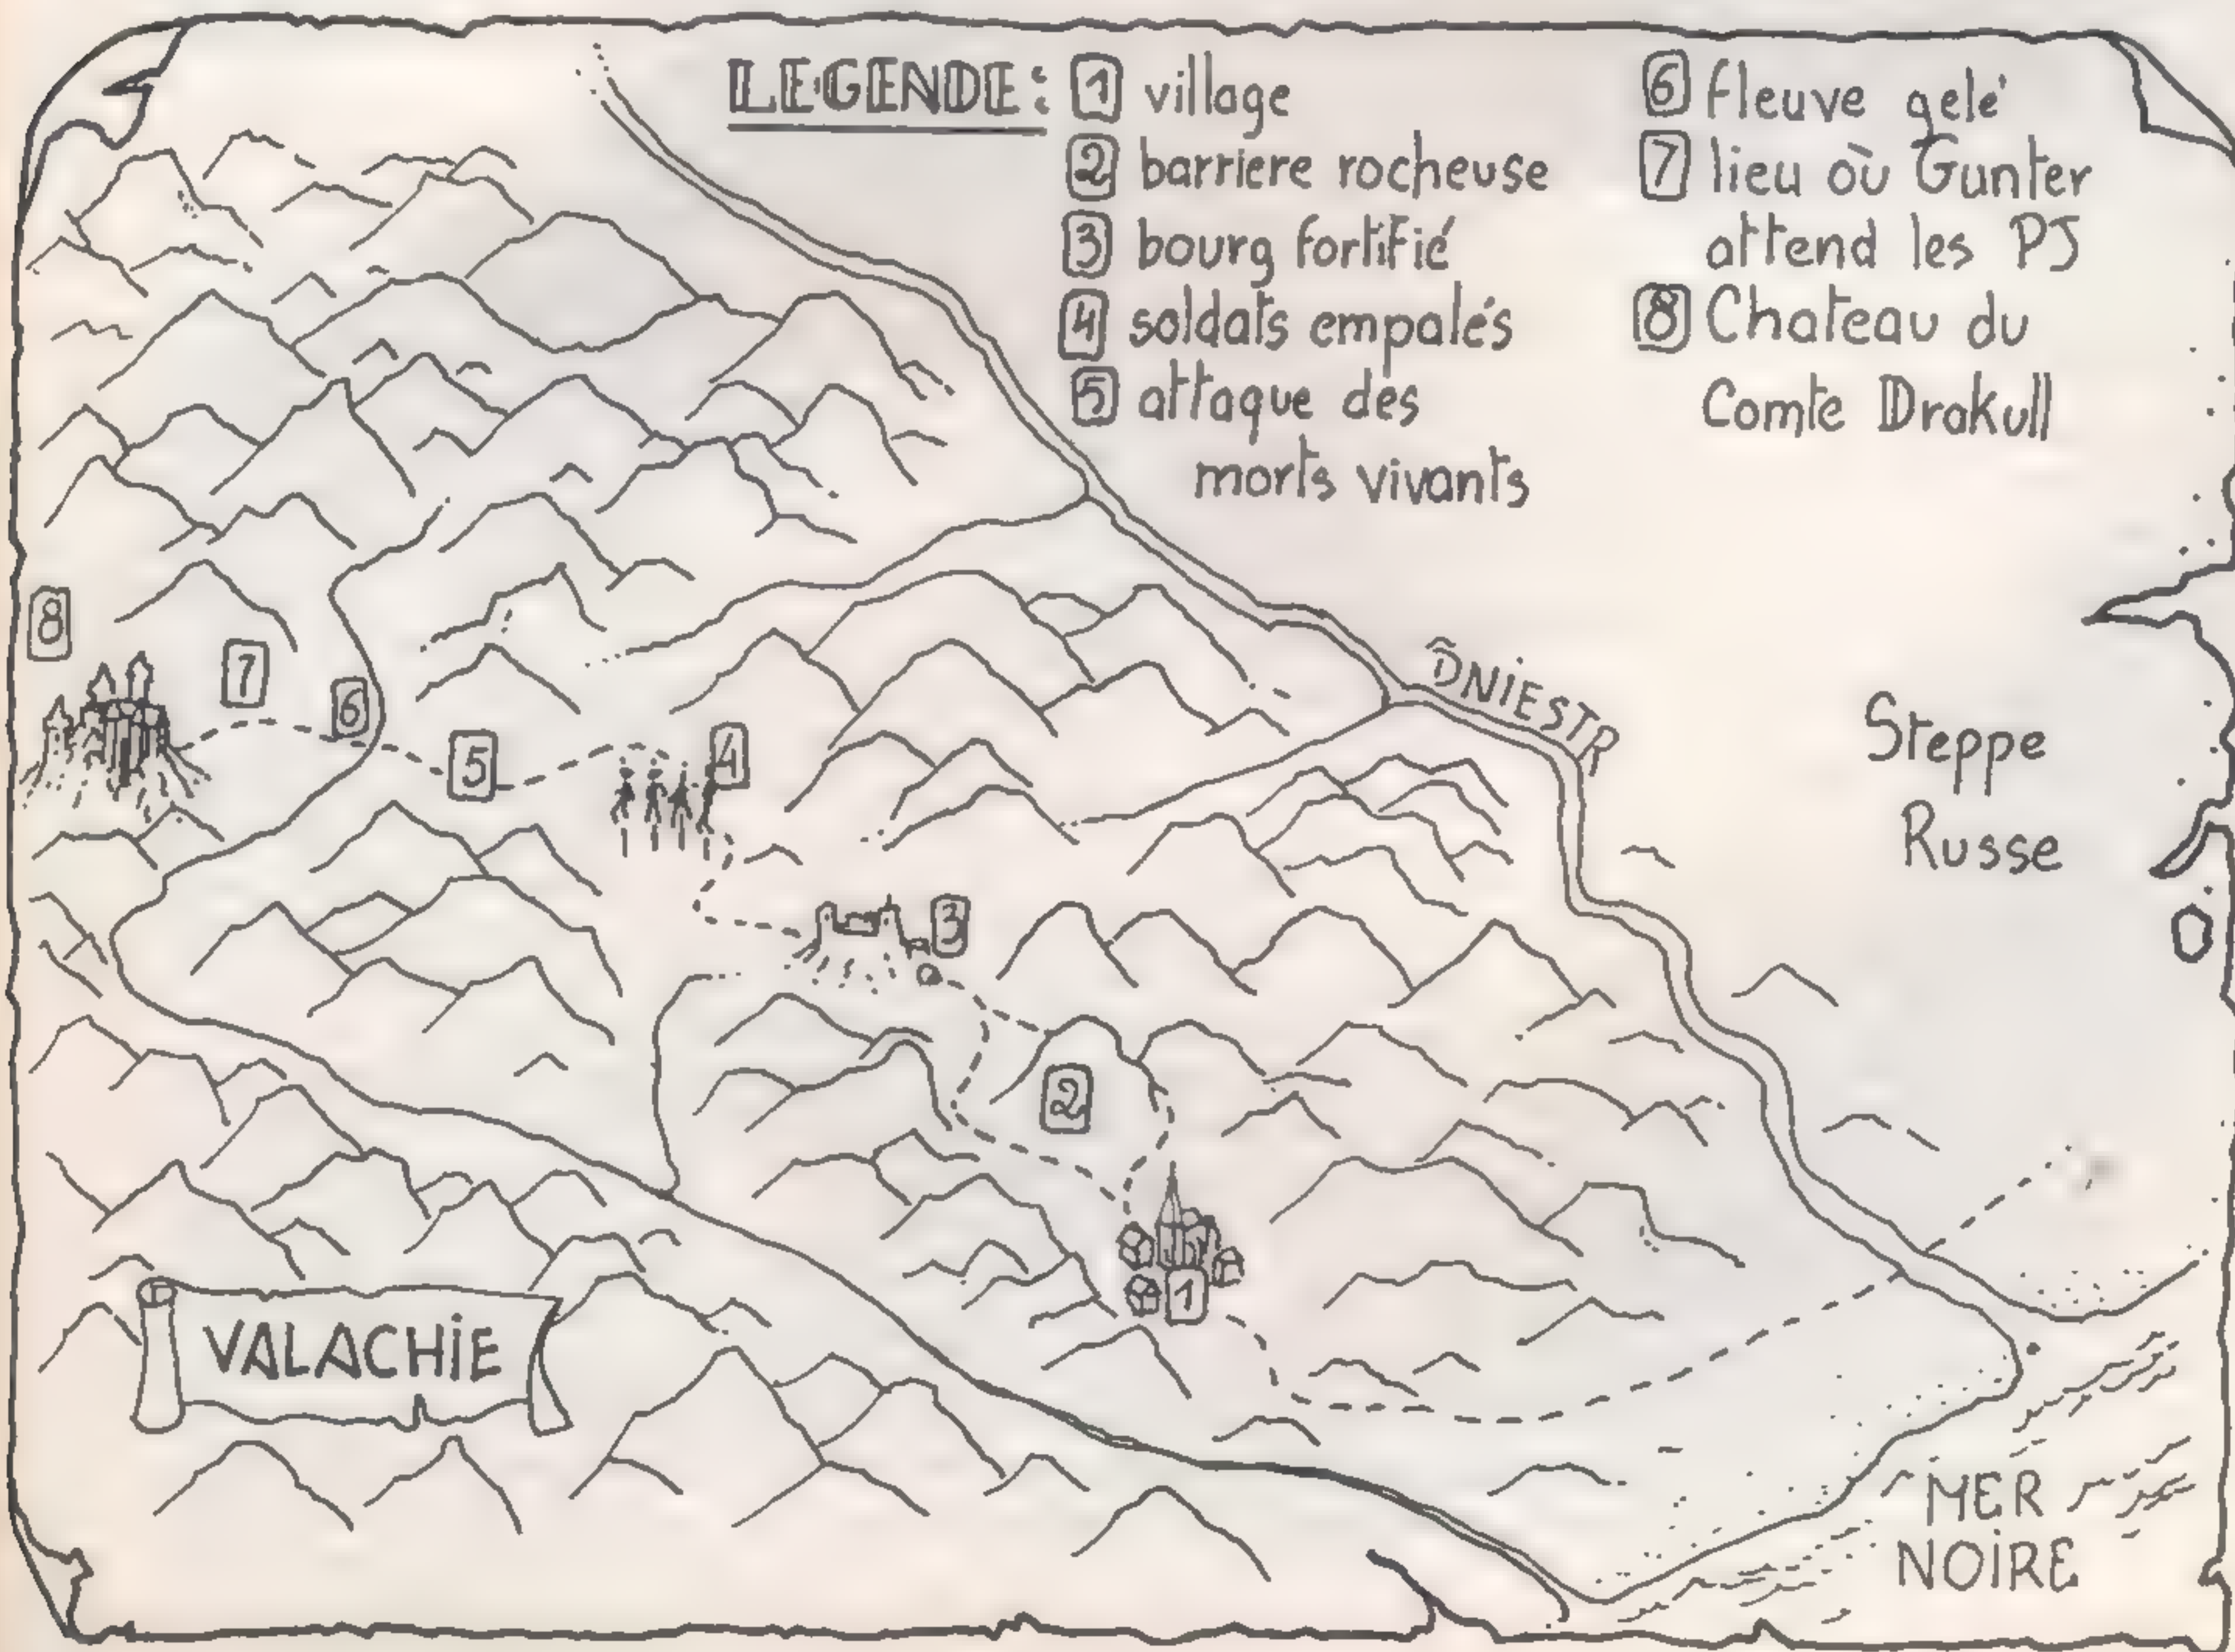 LEGENDE:
1 village
2 barriere rocheuse
3 bourg fortifié
4 soldats empalés
5 attaque des
morts vivants
6 fleuve gelé
7 lieu où Gunter
attend les PJ
8 Chateau du
Comte Drakull
8
7
6
5
4
DNiESTR
Steppe
Russe
3
2
1
VALACHiE
MER
NOiRE